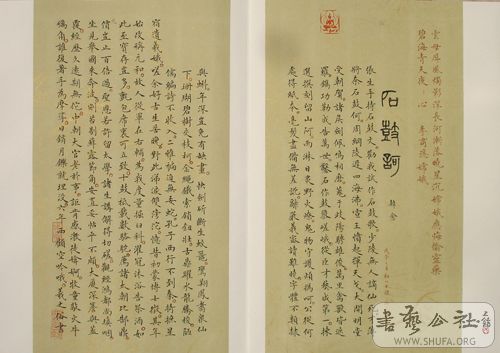 雲母屏風燭影深長河漸落曉星沉嫦娥應悔偷靈藥
碧海青天夜〻心 李商隱嫦娥
石鼓謌
韓愈
張生手持石鼓文勸我試作石鼓歌少陵無人謫仙死才薄
將奈石鼓何周綱陵遲四海沸宣王憤起揮天戈大開明堂
受朝賀諸侯劍佩鳴相磨蒐于岐陽騁雄俊萬里禽獸皆遮
羅鐫功勒成告萬世鑿石作鼓隳嵯峨從臣才藝咸第一揀
選撰刻留山阿雨淋日炙野火燎鬼物守護煩撝呵公從何
處得紙本毫髮盡備無差訛辭嚴義密讀難曉字體不類隸
與蝌年深豈免有缺畫快劍斫斷生蛟鼉鸞翔鳳翥眾仙
下珊瑚碧樹交枝柯金繩鐵索鎖鈕壯古鼎躍水龍騰梭陋
儒編詩不收入二雅褊迫無委蛇孔子西行不到秦掎摭星
宿遺羲娥嗟余好古生苦晚對此涕淚雙滂沱憶昔初蒙博士徵其年
始改稱元和故人從軍在右輔為我度量掘臼科濯冠沐浴告祭酒如
此至寶存豈多氈包席裹可立致十鼓祇載數駱駝薦諸太廟比郜鼎
光價豈止百倍過聖恩若許留太學諸生講解得切磋觀經鴻都尚填咽
坐見舉國來奔波剜苔剔蘚露節角安置妥帖平不頗大廈深簷與蓋
覆經歷久遠期無佗中朝大官老於事詎肯感激徒媕婀牧童敲火牛
礪角誰復著手為摩挲日銷月鑠就埋沒六年西顧空吟哦羲之俗書
書藝公社
WWW.SHUFA.ORG